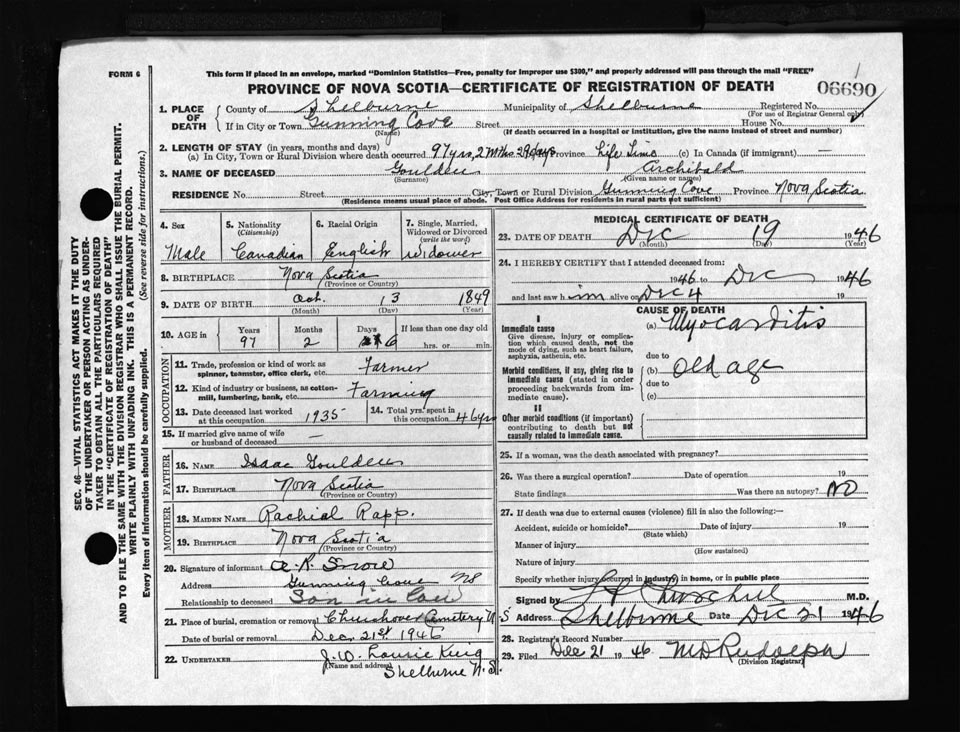 FORM 6
This form if placed in an envelope, marked "Dominion Statistics—Free, penalty for improper use $300," and properly addressed will pass through the mail "FREE"
PROVINCE OF NOVA SCOTIA—CERTIFICATE OF REGISTRATION OF DEATH
06690
1. PLACE OF DEATH
County of Shelburne Municipality of Shelburne Registered No.
(For use of Registrar General only)
If in City or Town Gunning Cove Street House No.
(Name) (If death occurred in a hospital or institution, give the name instead of street and number)
2. LENGTH OF STAY (in years, months and days)
(a) In City, Town or Rural Division where death occurred 97 yrs, 2 Mths Province Life Time (c) In Canada (if immigrant) —
3. NAME OF DECEASED Goulden Archibald
(Surname) (Given name or names)
RESIDENCE No. Street City, Town or Rural Division Gunning Cove Province Nova Scotia
(Residence means usual place of abode. Post Office Address for residents in rural parts not sufficient)
4. Sex
Male
5. Nationality
(Citizenship)
Canadian
6. Racial Origin
English
7. Single, Married,
Widowed or Divorced
(write the word)
Widower
8. BIRTHPLACE Nova Scotia
(Province or Country)
9. DATE OF BIRTH Oct. 13 1849
(Month) (Day) (Year)
10. AGE in Years Months Days If less than one day old
97 2 6 hrs. or min.
OCCUPATION
11. Trade, profession or kind of work as
spinner, teamster, office clerk, etc. Farmer
12. Kind of industry or business, as cotton-
mill, lumbering, bank, etc. Farming
13. Date deceased last worked
at this occupation 1935
14. Total yrs. spent in
this occupation 46 yrs
15. If married give name of wife
or husband of deceased —
FATHER
16. NAME Isaac Goulden
17. BIRTHPLACE Nova Scotia
(Province or Country)
MOTHER
18. MAIDEN NAME Rachial Rapp.
19. BIRTHPLACE Nova Scotia
(Province or Country)
20. Signature of informant A. R. Snow
Address Gunning Cove NS
Relationship to deceased Son in Law
21. Place of burial, cremation or removal Churchover Cemetery N.S
Date of burial or removal Dec. 21st 1946
22. UNDERTAKER J. W. Laurie King
(Name and address) Shelburne N.S.
MEDICAL CERTIFICATE OF DEATH
23. DATE OF DEATH Dec 19 1946
(Month) (Day) (Year)
24. I HEREBY CERTIFY that I attended deceased from:
1946 to Dec 1946
and last saw him alive on Dec 4 19
CAUSE OF DEATH
I
Immediate cause
Give disease, injury or complica-
tion which caused death, not the
mode of dying, such as heart failure,
asphyxia, asthenia, etc.
(a) Myocarditis
due to
Morbid conditions, if any, giving rise to
immediate cause (stated in order
proceeding backwards from im-
mediate cause).
(b) Old age
due to
(c)
II
Other morbid conditions (if important)
contributing to death but not
causally related to immediate cause.
25. If a woman, was the death associated with pregnancy?
26. Was there a surgical operation? Date of operation 19
State findings Was there an autopsy? NO
27. If death was due to external causes (violence) fill in also the following:—
Accident, suicide or homicide? Date of injury 19
(State which)
Manner of injury
(How sustained)
Nature of injury
Specify whether injury occurred in industry in home, or in public place
Signed by Churchill M.D.
Address Shelburne Date Dec 21 1946
28. Registrar's Record Number
29. Filed Dec 21 1946 M D Rudolph
(Division Registrar)
SEC. 46—VITAL STATISTICS ACT MAKES IT THE DUTY
OF THE UNDERTAKER OR PERSON ACTING AS UNDER-
TAKER TO OBTAIN ALL THE PARTICULARS REQUIRED
IN THE "CERTIFICATE OF REGISTRATION OF DEATH"
AND TO FILE THE SAME WITH THE DIVISION REGISTRAR WHO SHALL ISSUE THE BURIAL PERMIT.
WRITE PLAINLY WITH UNFADING INK. THIS IS A PERMANENT RECORD.
Every item of information should be carefully supplied. (See reverse side for instructions.)